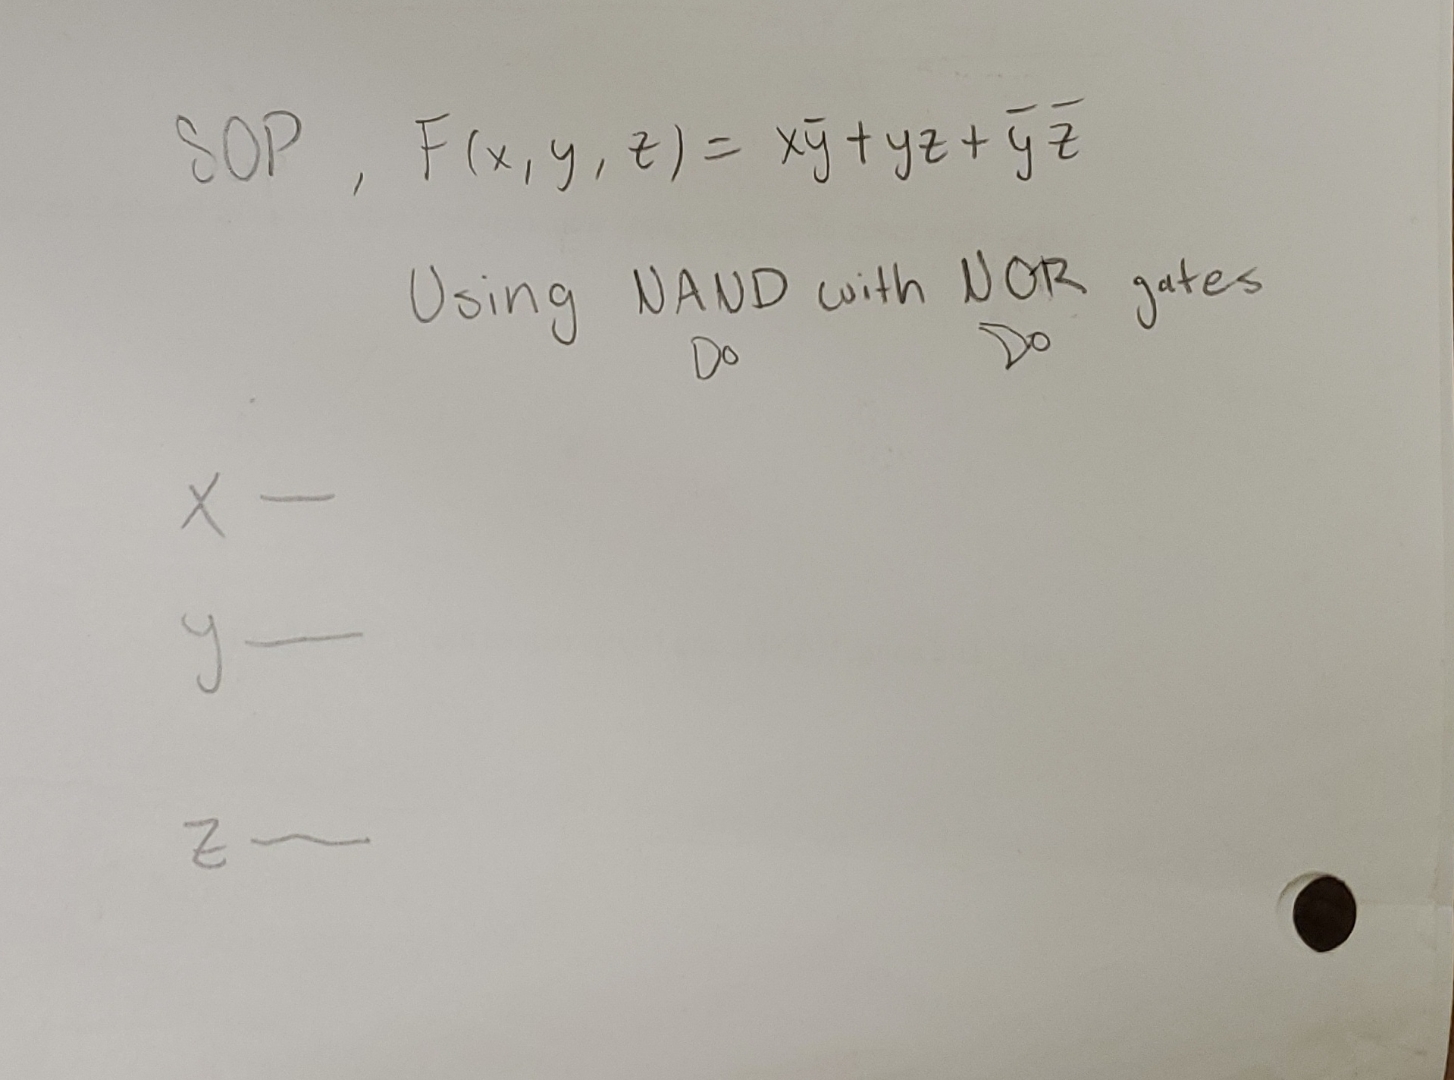 SOP, F(x, y, z) = xȳ + yz + ȳ z̄
Using NAND with NOR gates
x
y
z